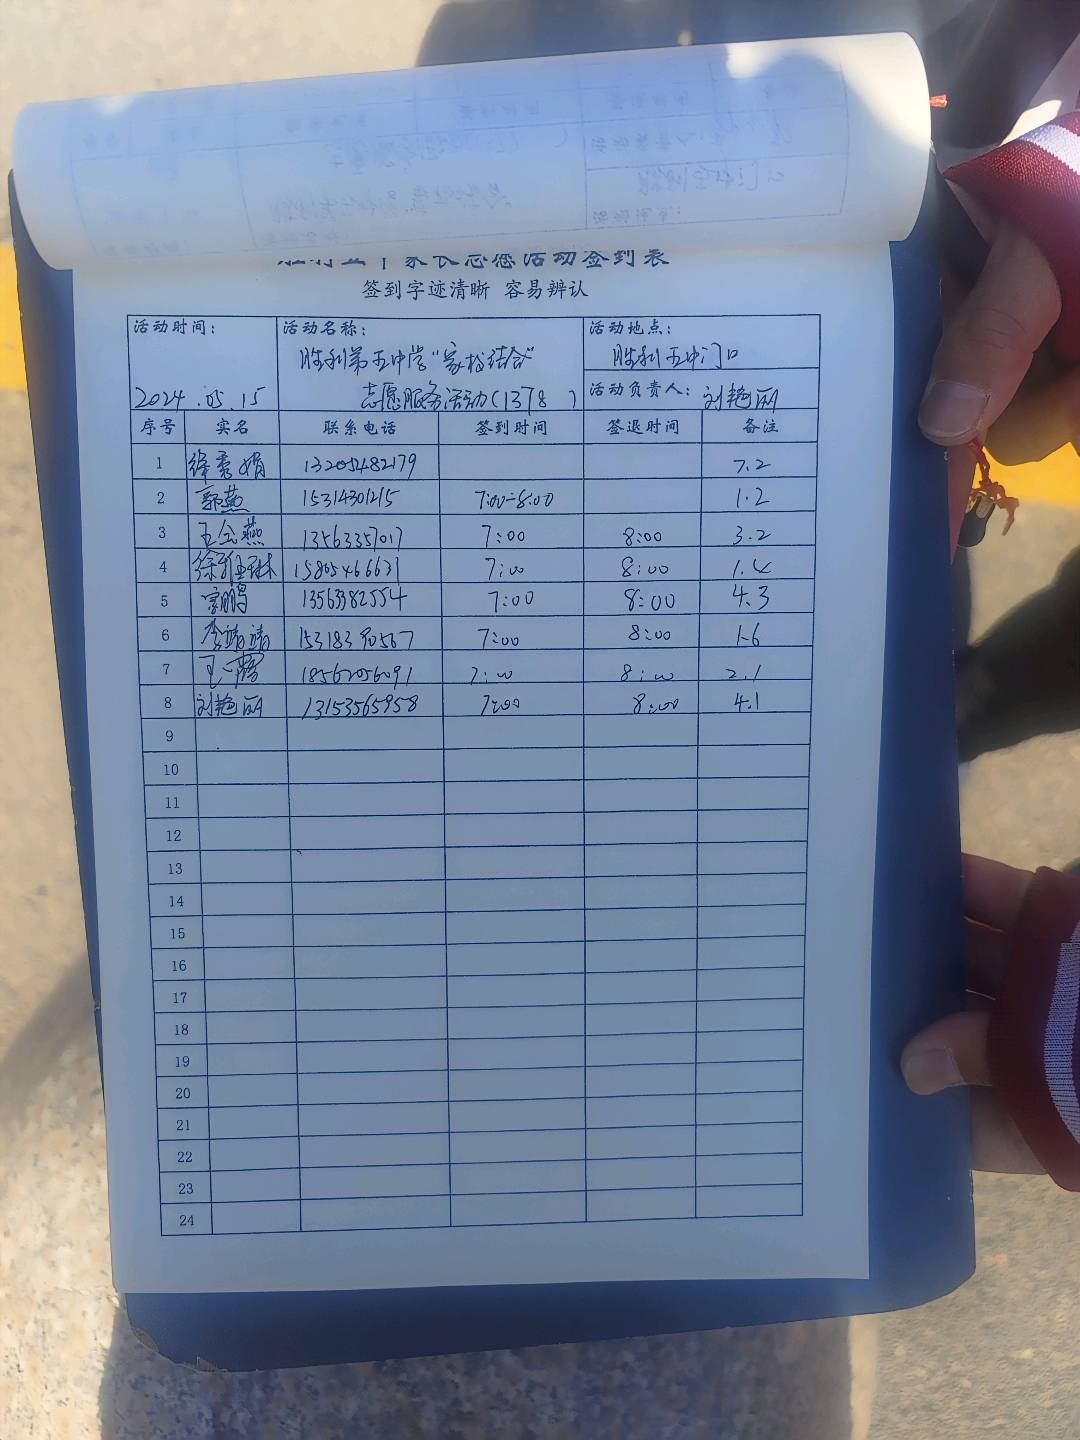 胜利五中家长志愿活动签到表
签到字迹清晰 容易辨认
活动时间: 活动名称: 活动地点:
胜利第五中学"家校结合" 胜利五中门口
2024.05.15 志愿服务活动(1378 ) 活动负责人: 刘艳丽
序号 实名 联系电话 签到时间 签退时间 备注
1 徐秀娟 13205482179 7.2
2 郭燕 15314301215 7:00-8:00 1.2
3 王全燕 13563357017 7:00 8:00 3.2
4 徐雅琳 15805466631 7:00 8:00 1.4
5 宗鹏 13563382554 7:00 8:00 4.3
6 李靖靖 15318390567 7:00 8:00 1-6
7 18562056091 7:00 8:00 2.1
8 刘艳丽 13153565958 7:00 8:00 4.1
9
10
11
12
13
14
15
16
17
18
19
20
21
22
23
24